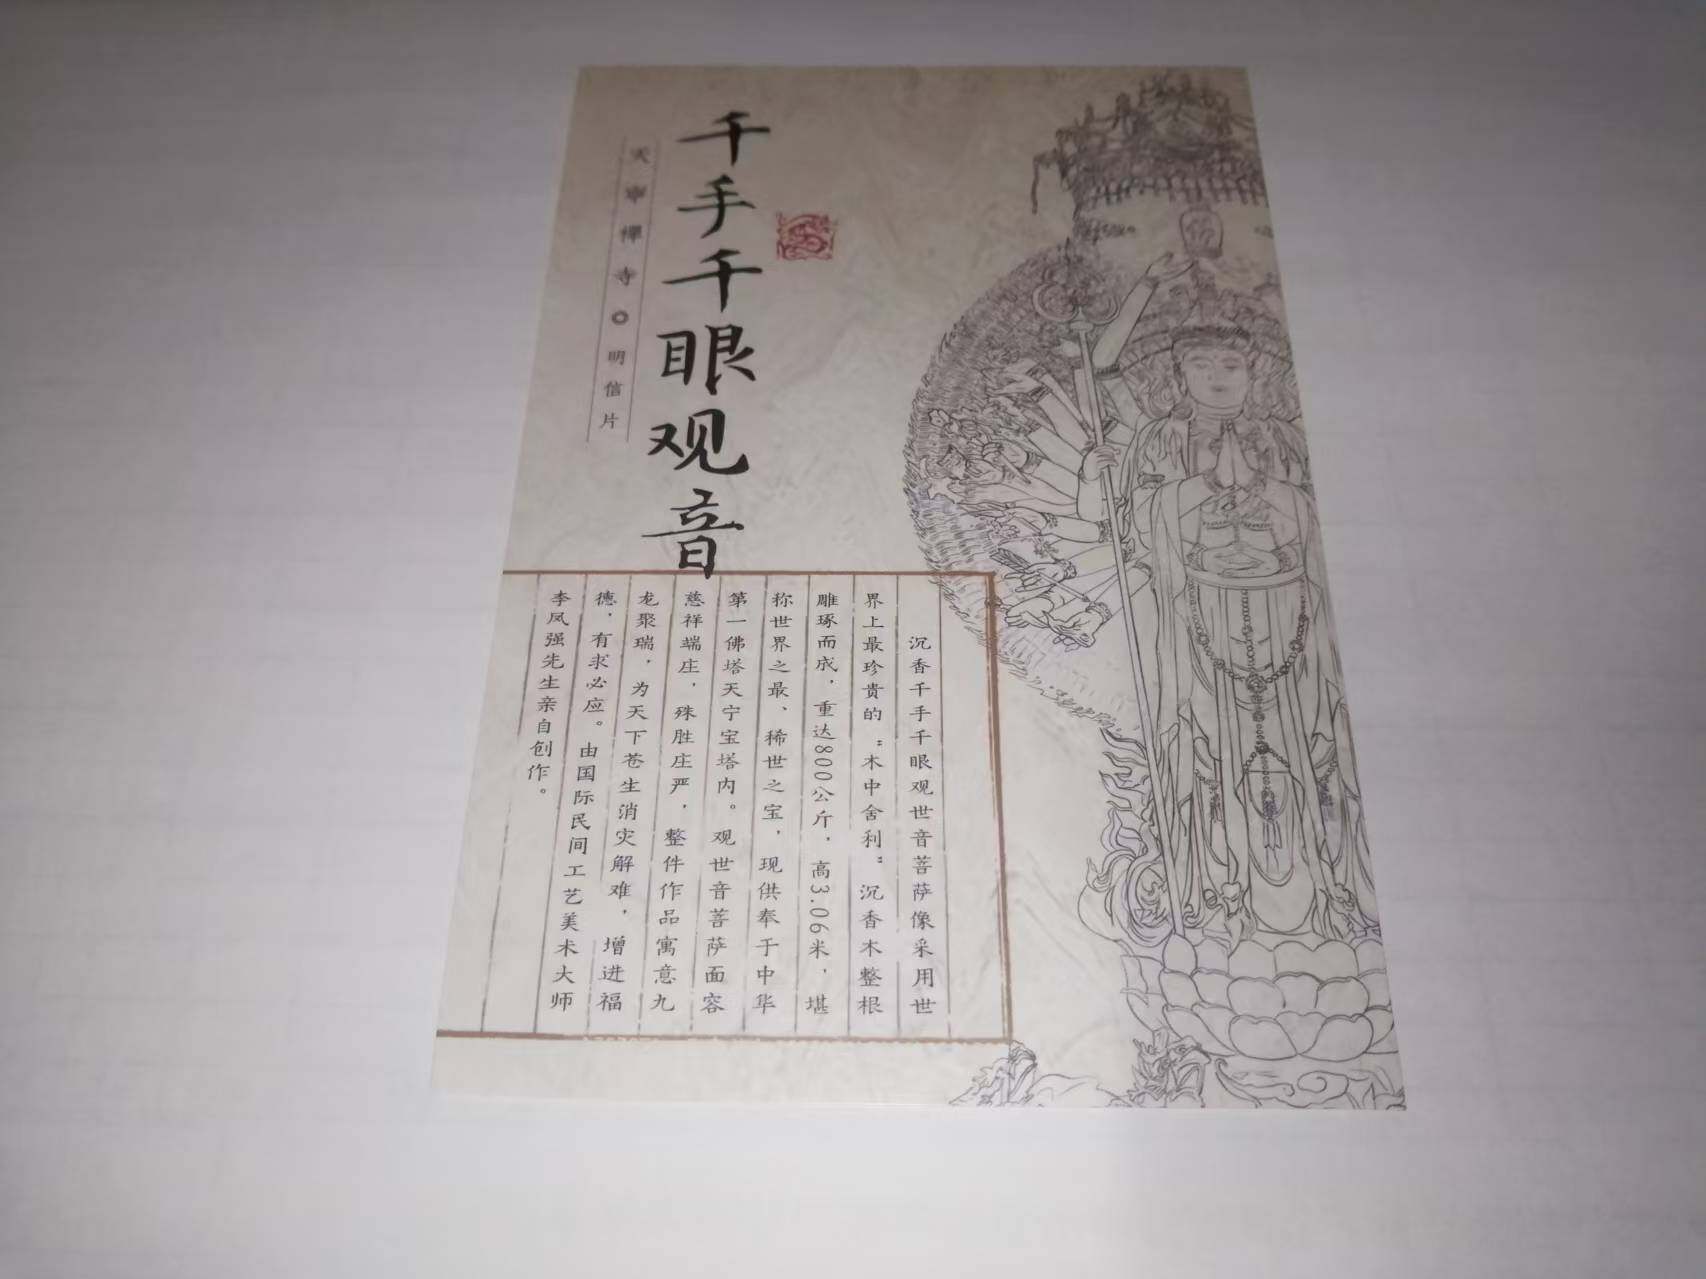 千手千眼观音
天寧禪寺◎明信片
沉香千手千眼观世音菩萨像采用世
界上最珍贵的“木中舍利”沉香木整根
雕琢而成，重达800公斤，高3.06米，堪
称世界之最、稀世之宝，现供奉于中华
第一佛塔天宁宝塔内。观世音菩萨面容
慈祥端庄，殊胜庄严，整件作品寓意九
龙聚瑞，为天下苍生消灾解难，增进福
德，有求必应。由国际民间工艺美术大师
李凤强先生亲自创作。